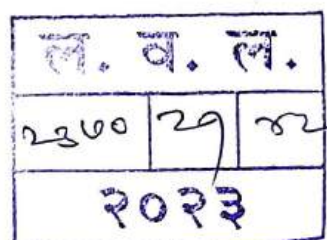 ल. व. ल.
२३७० २१ ४२
२०२३